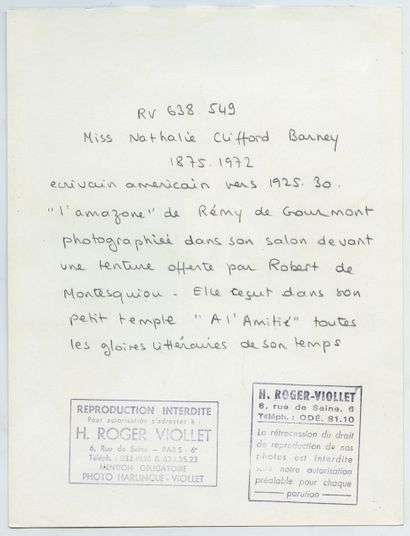 RV 638.549
Miss Nathalie Clifford Barney
1875.1972
ecrivain americain vers 1925.30.
"l'amazone" de Rémy de Gourmont
photographiée dans son salon devant
une tenture offerte par Robert de
Montesquiou - Elle reçut dans son
petit temple "A l'Amitié" toutes
les gloires littéraires de son temps
REPRODUCTION INTERDITE
Pour autorisation s'adresser à :
H. ROGER VIOLLET
6, Rue de Seine - PARIS - 6e
Téléph. : 033.81.10 & 633.35.23
MENTION OBLIGATOIRE
PHOTO HARLINGUE - VIOLLET
H. ROGER-VIOLLET
6, rue de Seine, 6
Téléph. : ODÉ. 81.10
La rétrocession du droit
de reproduction de nos
photos est interdite
sans notre autorisation
préalable pour chaque
parution